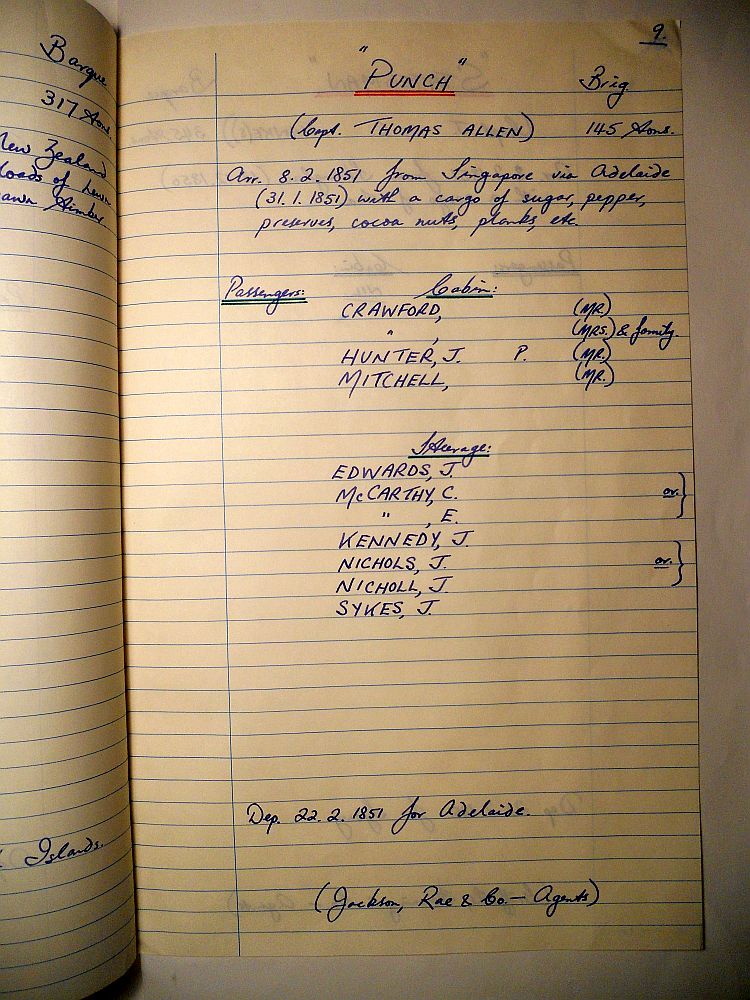 Barque
317 tons.
New Zealand
loads of hewn
sawn timber.
Islands.
9.
"PUNCH" Brig
(Capt. THOMAS ALLEN) 145 tons.
Arr. 8.2.1851 from Singapore via Adelaide
(31.1.1851) with a cargo of sugar, pepper,
preserves, cocoa nuts, planks, etc.
Passengers: Cabin:
CRAWFORD, (MR.)
" , (MRS.) & family.
HUNTER, J. P. (MR.)
MITCHELL, (MR.)
Steerage:
EDWARDS, J.
McCARTHY, C. or. }
" , E.
KENNEDY, J.
NICHOLS, J. or. }
NICHOLL, J.
SYKES, J.
Dep. 22.2.1851 for Adelaide.
(Jackson, Rae & Co. — Agents)